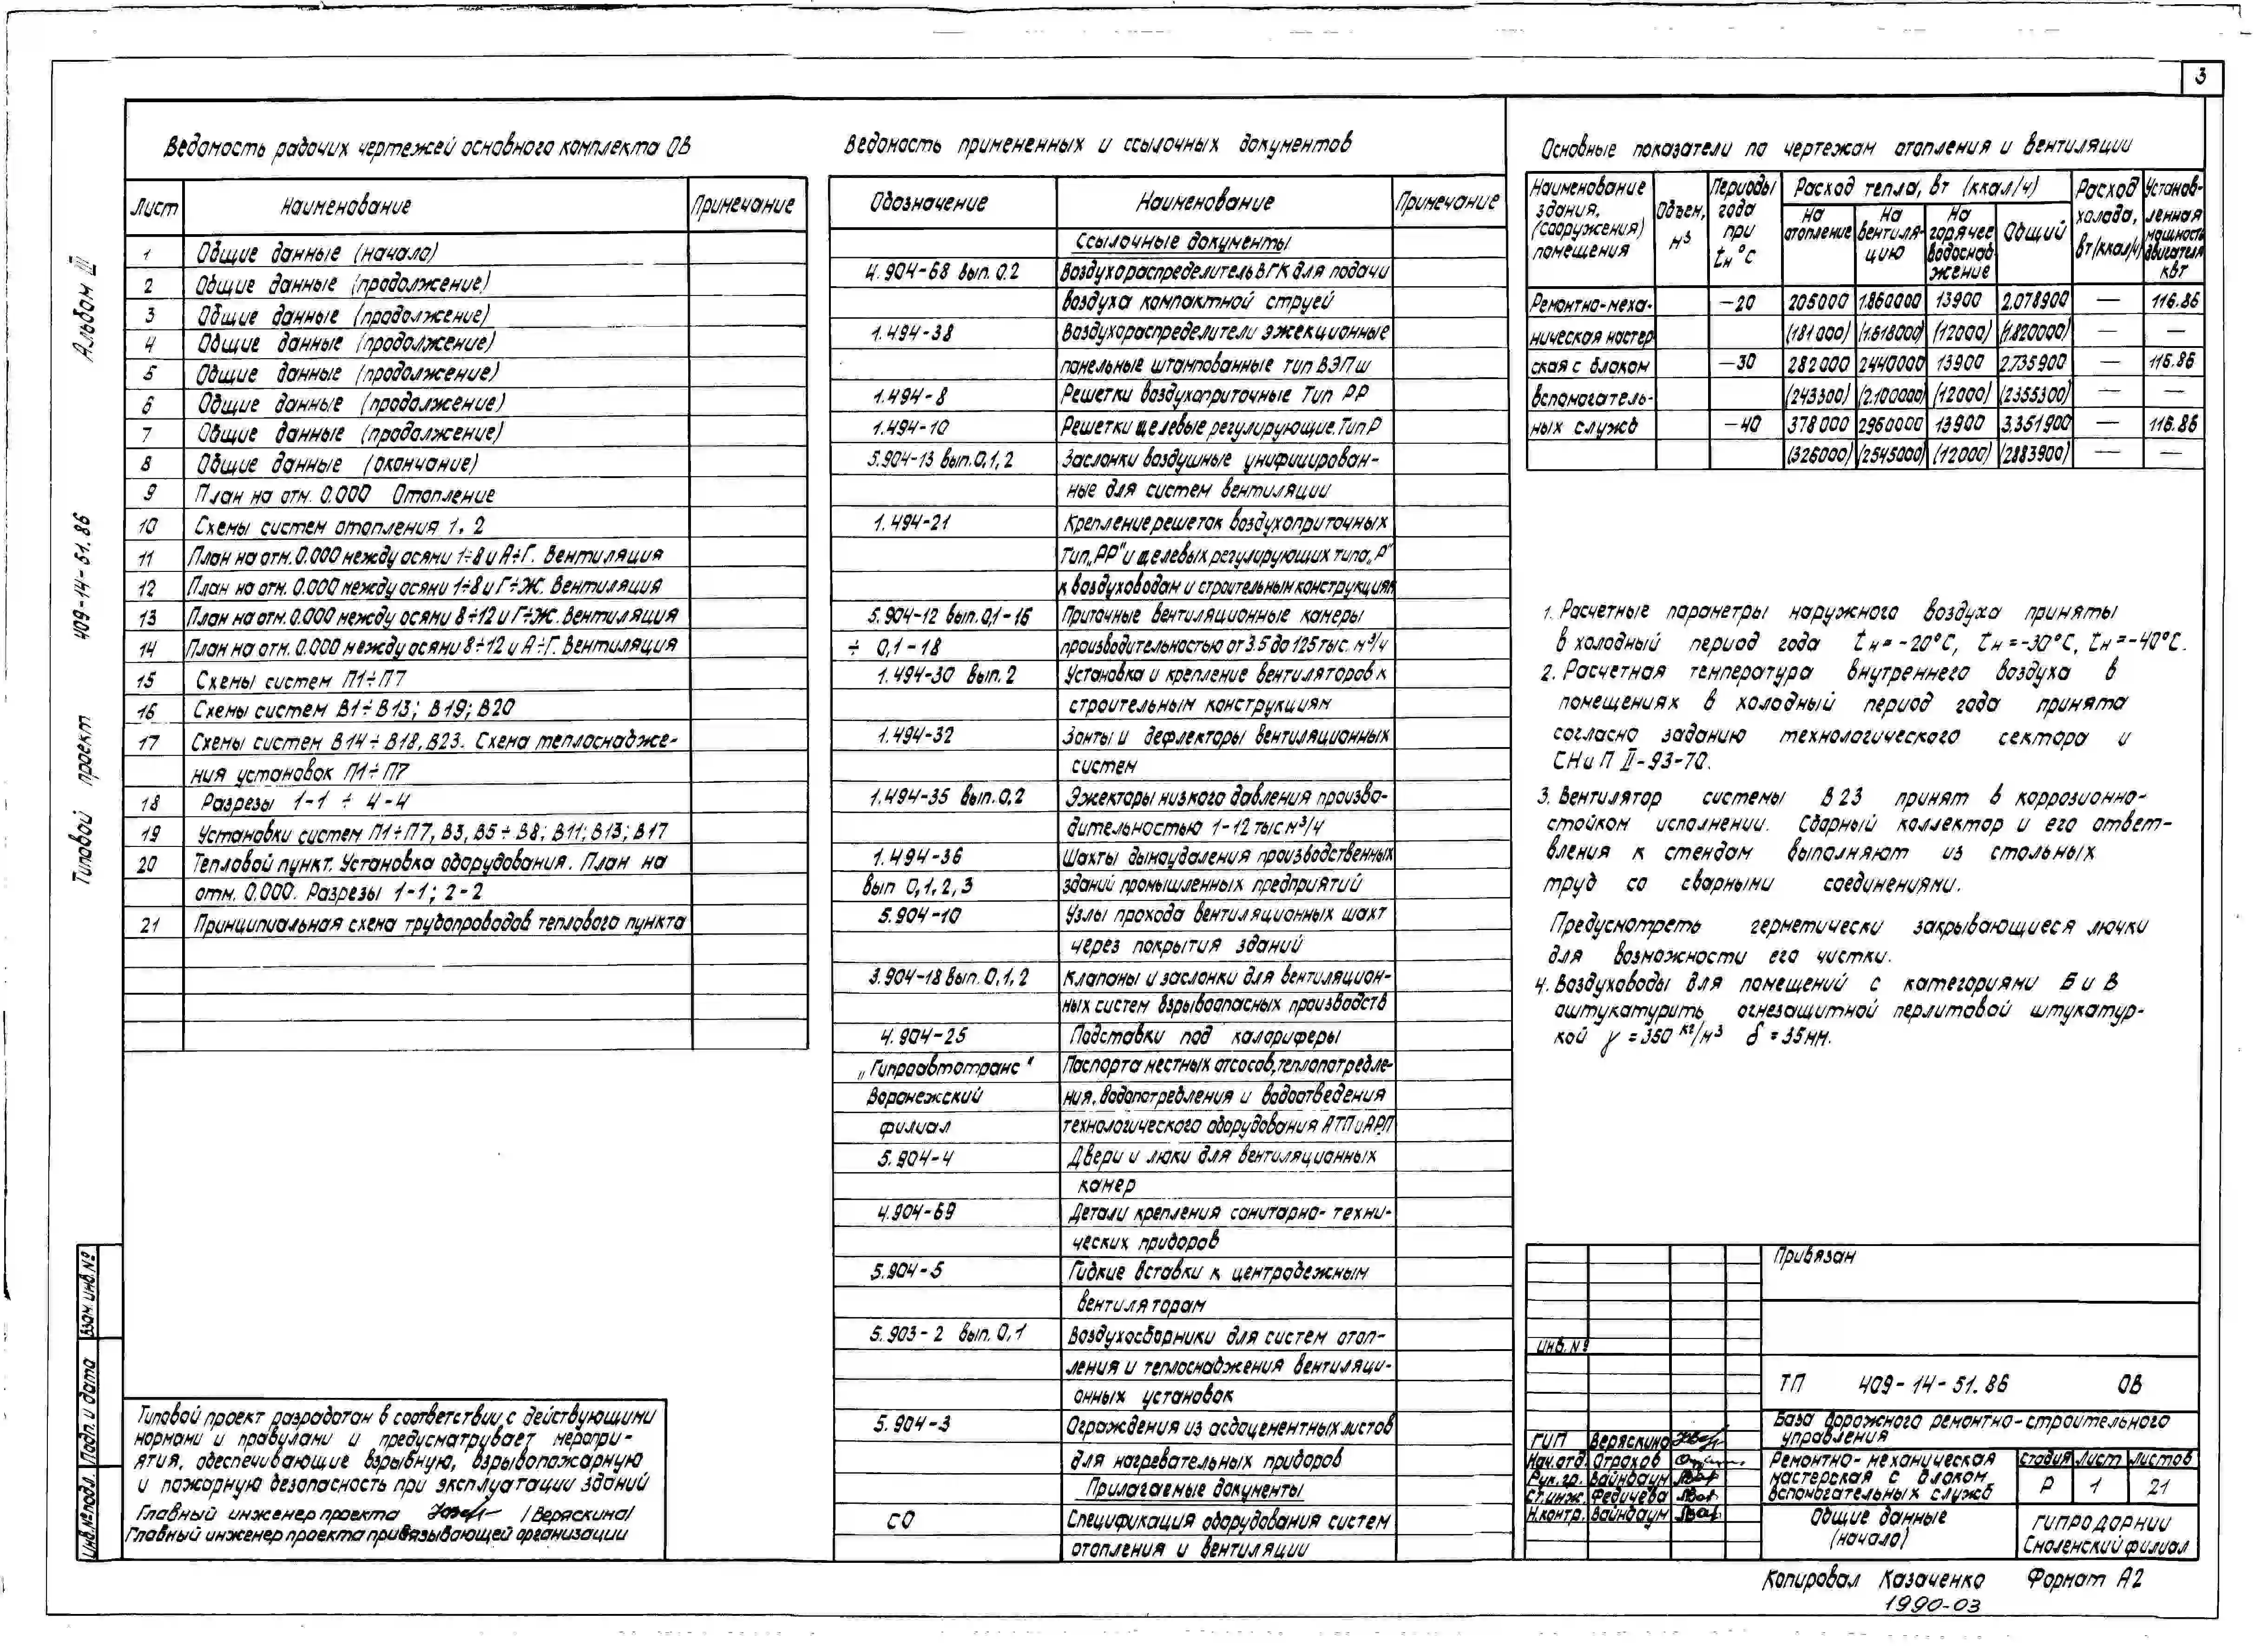 3
Альбом III
409-14-51.86
Типовой проект
Взам. инв. №
Подп. и дата
Инв. № подл.
Ведомость рабочих чертежей основного комплекта ОВ
Лист Наименование Примечание
1 Общие данные (начало)
2 Общие данные (продолжение)
3 Общие данные (продолжение)
4 Общие данные (продолжение)
5 Общие данные (продолжение)
6 Общие данные (продолжение)
7 Общие данные (продолжение)
8 Общие данные (окончание)
9 План на отм. 0.000 Отопление
10 Схемы систем отопления 1, 2
11 План на отм. 0.000 между осями 1÷8 и А÷Г. Вентиляция
12 План на отм. 0.000 между осями 1÷8 и Г÷Ж. Вентиляция
13 План на отм. 0.000 между осями 8÷12 и Г÷Ж. Вентиляция
14 План на отм. 0.000 между осями 8÷12 и А÷Г. Вентиляция
15 Схемы систем П1÷П7
16 Схемы систем В1÷В13; В19; В20
17 Схемы систем В14÷В18, В23. Схема теплоснабже-
ния установок П1÷П7
18 Разрезы 1-1 ÷ 4-4
19 Установки систем П1÷П7, В3, В5÷В8; В11; В13; В17
20 Тепловой пункт. Установка оборудования. План на
отм. 0.000. Разрезы 1-1; 2-2
21 Принципиальная схема трубопроводов теплового пункта
Типовой проект разработан в соответствии с действующими
нормами и правилами и предусматривает меропри-
ятия, обеспечивающие взрывную, взрывопожарную
и пожарную безопасность при эксплуатации зданий
Главный инженер проекта /Веряскина/
Главный инженер проекта привязывающей организации
Ведомость примененных и ссылочных документов
Обозначение Наименование Примечание
Ссылочные документы
4.904-68 вып. 0.2 Воздухораспределитель ВГК для подачи
воздуха компактной струей
1.494-38 Воздухораспределители эжекционные
панельные штампованные тип ВЭПш
1.494-8 Решетки воздухоприточные Тип РР
1.494-10 Решетки щелевые регулирующие. Тип Р
5.904-13 вып. 0,1,2 Заслонки воздушные унифицирован-
ные для систем вентиляции
1.494-21 Крепление решеток воздухоприточных
Тип „РР" и щелевых регулирующих типа „Р"
к воздуховодам и строительным конструкциям
5.904-12 вып. 0,1-16 Приточные вентиляционные камеры
÷ 0,1-18 производительностью от 3.5 до 125 тыс. м³/ч
1.494-30 вып. 2 Установка и крепление вентиляторов к
строительным конструкциям
1.494-32 Зонты и дефлекторы вентиляционных
систем
1.494-35 вып. 0.2 Эжекторы низкого давления произво-
дительностью 1-12 тыс м³/ч
1.494-36 Шахты дымоудаления производственных
вып 0,1,2,3 зданий промышленных предприятий
5.904-10 Узлы прохода вентиляционных шахт
через покрытия зданий
3.904-18 вып. 0,1,2 Клапаны и заслонки для вентиляцион-
ных систем взрывоопасных производств
4.904-25 Подставки под калориферы
„Гипроавтотранс" Паспорта местных отсосов, теплопотребле-
Воронежский ния, водопотребления и водоотведения
филиал технологического оборудования АТП и АРП
5.904-4 Двери и люки для вентиляционных
камер
4.904-69 Детали крепления санитарно-техни-
ческих приборов
5.904-5 Гибкие вставки к центробежным
вентиляторам
5.903-2 вып. 0,1 Воздухосборники для систем отоп-
ления и теплоснабжения вентиляци-
онных установок
5.904-3 Ограждения из асбоцементных листов
для нагревательных приборов
Прилагаемые документы
СО Спецификация оборудования систем
отопления и вентиляции
Основные показатели по чертежам отопления и вентиляции
Наименование здания, (сооружения) помещения Объем, м³ Периоды года при tн °С Расход тепла, вт (ккал/ч) Расход холода, вт/(ккал/ч) Установ-ленная мощность двигателя квт
На отопление На вентиля-цию На горячее водоснаб-жение Общий
Ремонтно-меха- -20 205000 1.860000 13900 2.078900 — 116.86
ническая мастер (181000) (1.618000) (12000) (1.820000) — —
ская с блоком -30 282000 2440000 13900 2.735900 — 116.86
вспомогатель- (243300) (2.100000) (12000) (2355300) — —
ных служб -40 378000 2960000 13900 3.351900 — 116.86
(326000) (2545000) (12000) (2883900) — —
1. Расчетные параметры наружного воздуха приняты
в холодный период года tн=-20°С, tн=-30°С, tн=-40°С.
2. Расчетная температура внутреннего воздуха в
помещениях в холодный период года принята
согласно заданию технологического сектора и
СНиП II-93-70.
3. Вентилятор системы В23 принят в коррозионно-
стойком исполнении. Сборный коллектор и его ответ-
вления к стендам выполняют из стальных
труб со сварными соединениями.
Предусмотреть герметически закрывающиеся лючки
для возможности его чистки.
4. Воздуховоды для помещений с категориями Б и В
оштукатурить огнезащитной перлитовой штукатур-
кой γ = 350 кг/м³ δ = 35 мм.
Привязан
Инв. №
ТП 409-14-51.86 ОВ
База дорожного ремонтно-строительного
управления
ГИП Веряскина
Нач. отд. Отрохов
Рук. гр. Вайнбаум
Ст. инж. Федичева
Н.контр. Вайнбаум
Ремонтно-механическая
мастерская с блоком
вспомогательных служб
стадия лист листов
Р 1 21
Общие данные
(начало)
ГИПРОДОРНИИ
Смоленский филиал
Копировал Казаченко Формат А2
1990-03